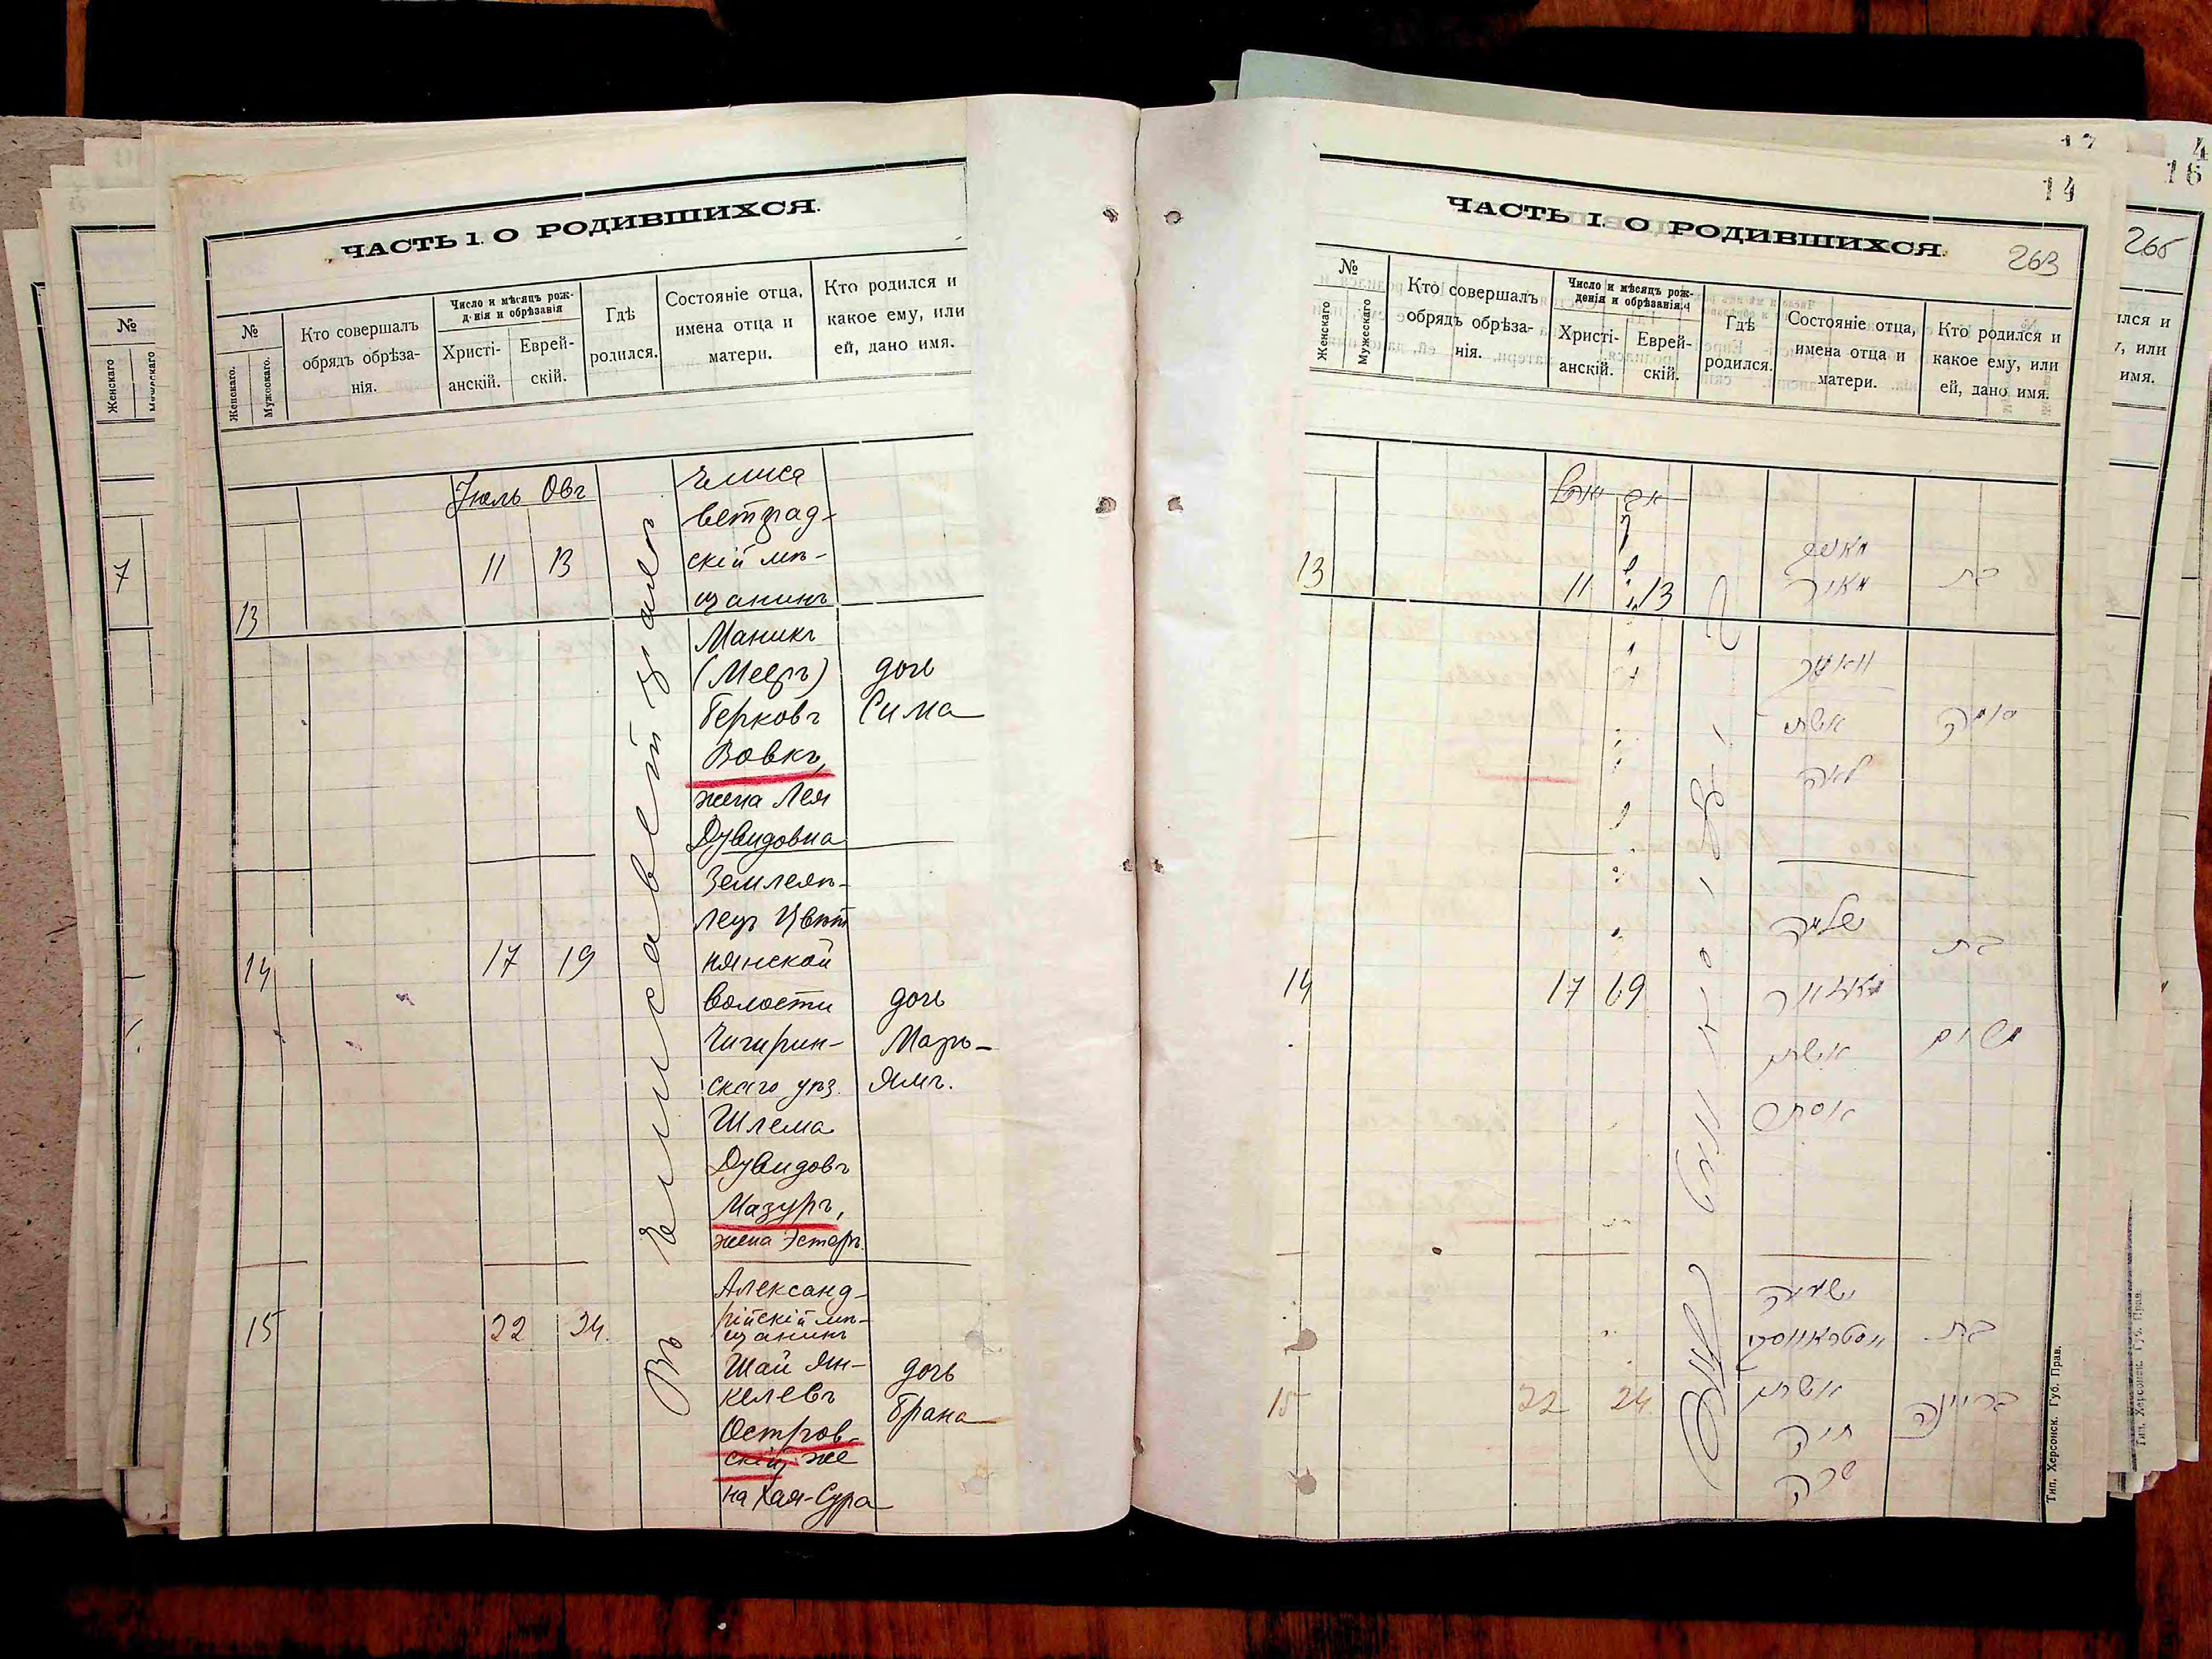 ЧАСТЬ 1. О РОДИВШИХСЯ.
№
Женскаго.
Мужскаго.
Кто совершалъ
обрядъ обрѣза-
нія.
Число и мѣсяцъ рож-
денія и обрѣзанія
Христі-
анскій.
Еврей-
скій.
Гдѣ
родился.
Состояніе отца,
имена отца и
матери.
Кто родился и
какое ему, или
ей, дано имя.
Іюль Овг
13
11 13
Въ Елисаветградѣ
Елиса
ветград-
скій мѣ-
щанинъ
Маникъ
(Мееръ)
Берковъ
Вовкъ,
жена Лея
Дувидовна
дочь
Сима
14
17 19
Землевл-
лецъ Цвѣт
нянской
волости
Чигирин-
скаго уѣз.
Шлема
Дувидовъ
Мазуръ,
жена Эстеръ
дочь
Марь-
ямъ.
15
22 24
Александ-
рійскій мѣ-
щанинъ
Шай Ян-
келевъ
Остров-
скій, же
на Хая-Сура
дочь
Брана
14
263
ЧАСТЬ I. О РОДИВШИХСЯ.
№
Женскаго
Мужескаго
Кто совершалъ
обрядъ обрѣза-
нія.
Число и мѣсяцъ рож-
денія и обрѣзанія.
Христі-
анскій.
Еврей-
скій.
Гдѣ
родился.
Состояніе отца,
имена отца и
матери.
Кто родился и
какое ему, или
ей, дано имя.
13
11 13
מאיר
בת
אשתו
לאה
סימה
14
17 19
שלמה
מאזור
אשתו
אסתר
בת
מרים
15
22 24
ישעיה
אסטראווסקי
אשתו
חיה
שרה
בת
בריינה
Тип. Херсонск. Губ. Прав.
№
Женскаго
7
4
16
265
лся и
, или
имя.